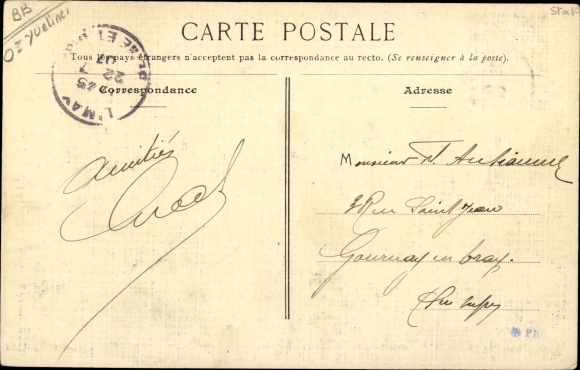 BB
Oz yvelines
Stock
CARTE POSTALE
Tous les pays étrangers n'acceptent pas la correspondance au recto. (Se renseigner à la poste).
Correspondance
Adresse
22
Amitiés
Monsieur
3 Rue Saint Jean
Gournay en bray.
PB